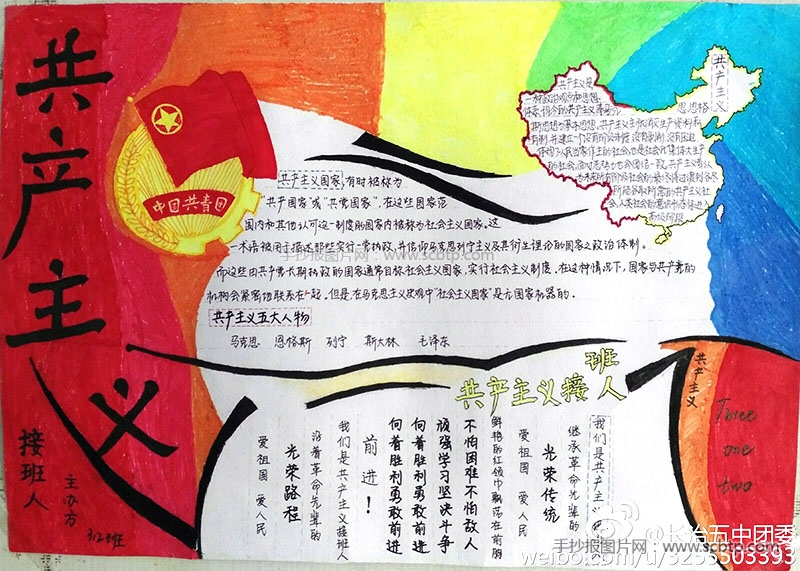 共产主义
接班人
主办方
312班
中国共青团
共产主义国家,有时被称为
“共产国家”或“共党国家”,在这些国家范
国内和其他认可这一制度的国家内被称为社会主义国家。这
一术语被用于描述那些实行一党执政,并信仰马克思列宁主义及其衍生理论的国家之政治体制。
而这些由共产党长期执政的国家通常自标社会主义国家,实行社会主义制度。在这种情况下,国家与共产党的
机构会紧密地联系在一起。但是,在马克思主义史观中“社会主义国家”是
国家机器的。
共产主义五大人物
马克思 恩格斯 列宁 斯大林 毛泽东
共产主义
共产主义是
一种政治观点和思想
思恩格
体系,
斯思想为基本思想。共产主义主张消灭生产资料私
有制,并建立一个没有阶级制度、没有剥削、没有压迫
共产主义接班人
我们是共产主义
继承革命先辈的
光荣传统
爱祖国 爱人民
鲜艳的红领巾飘荡在前胸
不怕困难不怕敌人
顽强学习坚决斗争
向着胜利勇敢前进
向着胜利勇敢前进
前进!
我们是共产主义接班人
沿着革命先辈的
光荣路程
爱祖国 爱人民
共产主义
Three
one
two
手抄报图片网:www.scbtp.com
@长治五中团委
手抄报图片网:www.scbtp.com
weibo.com/u/3253303393